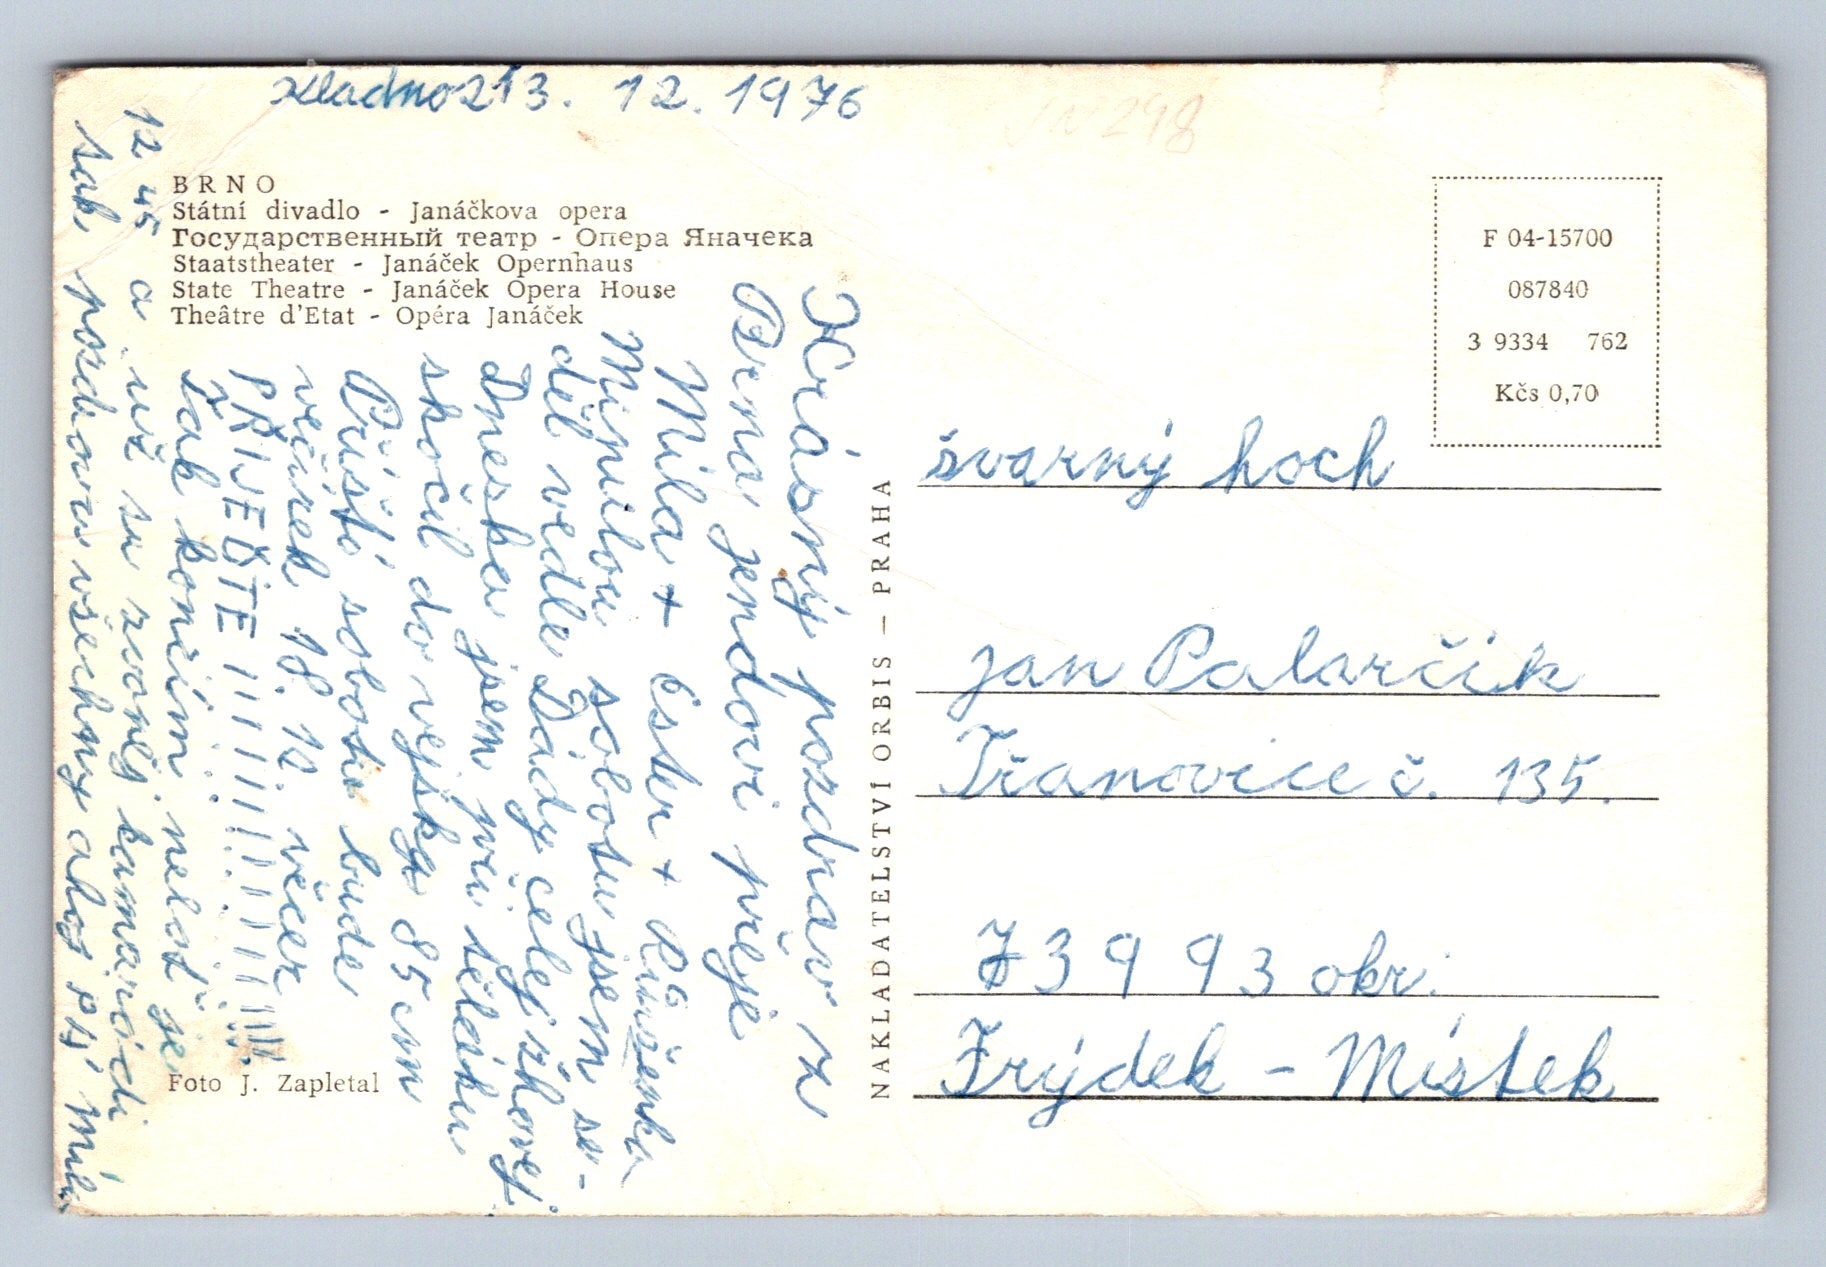 13. 12. 1976
BRNO
Státní divadlo - Janáčkova opera
Государственный театр - Опера Яначека
Staatstheater - Janáček Opernhaus
State Theatre - Janáček Opera House
Theâtre d'Etat - Opéra Janáček
Krásný pozdrav z
Brna jendovi přeje
Míla + Ester + Růženka
Minulou sobotu jsem se-
děl vedle Dády celej žhavej.
Dneska jsem při těláku
skočil do vejšky 85 cm
Příští sobotu bude
večírek 18. 12. večer
PŘIJEĎTE !!!!!!!!!!!!!!!!!!!!
Tak končím, neboť je
12 45 a už su zvoněj kamarádi
tak pozdravuj všechny ahoj Píš Míla
Foto J. Zapletal
NAKLADATELSTVÍ ORBIS — PRAHA
F 04-15700
087840
3 9334 762
Kčs 0,70
švarný hoch
jan Palarčik
Třanovice č. 135.
73993 okr.
Frýdek - Místek